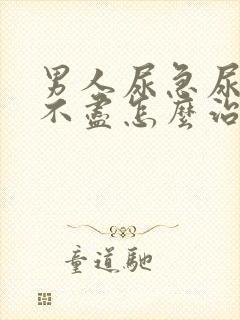 男人尿急尿
不盡怎麼治
童道馳